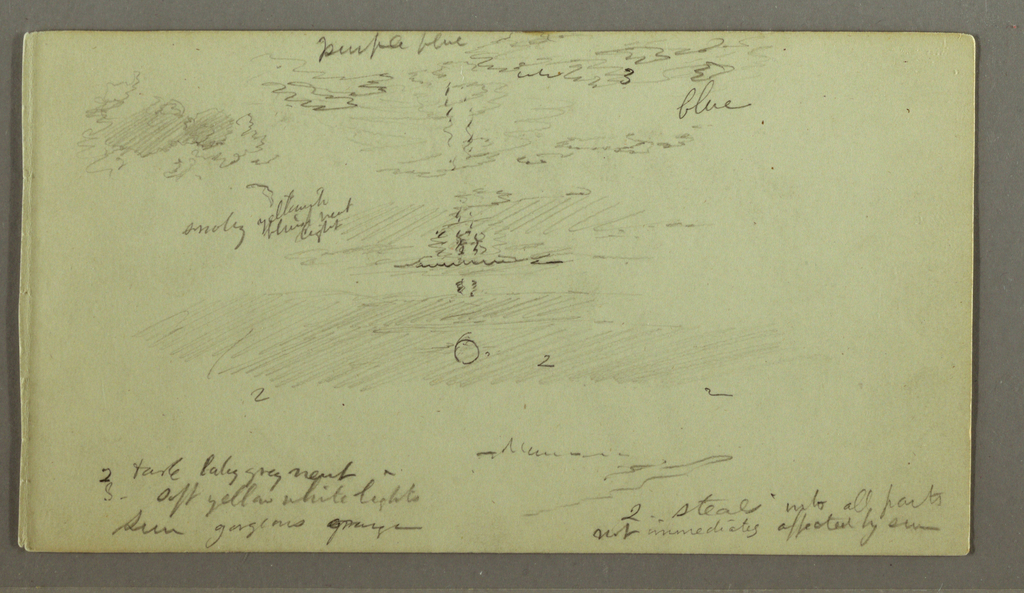 purple blue
3
blue
smoky
light
2
2
2
2 dark grey neut
3. soft yellow white lights
Sun gorgeous orange
2 steals into all parts
not immediately affected by sun